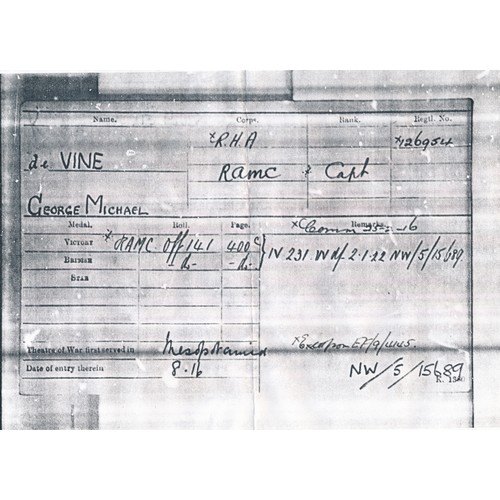 Name. Corps. Rank. Regtl. No.
*R.H.A *126954
de VINE RAMC * Capt
GEORGE MICHAEL
Medal. Roll. Page. Remarks.
*Comm 16
VICTORY * RAMC Off 141 400c IV 231 W df 2.1.22 NW/5/15689
BRITISH -do- -do-
STAR
Theatre of War first served in Mesopotamia
Date of entry therein 8.16
NW/5/15689